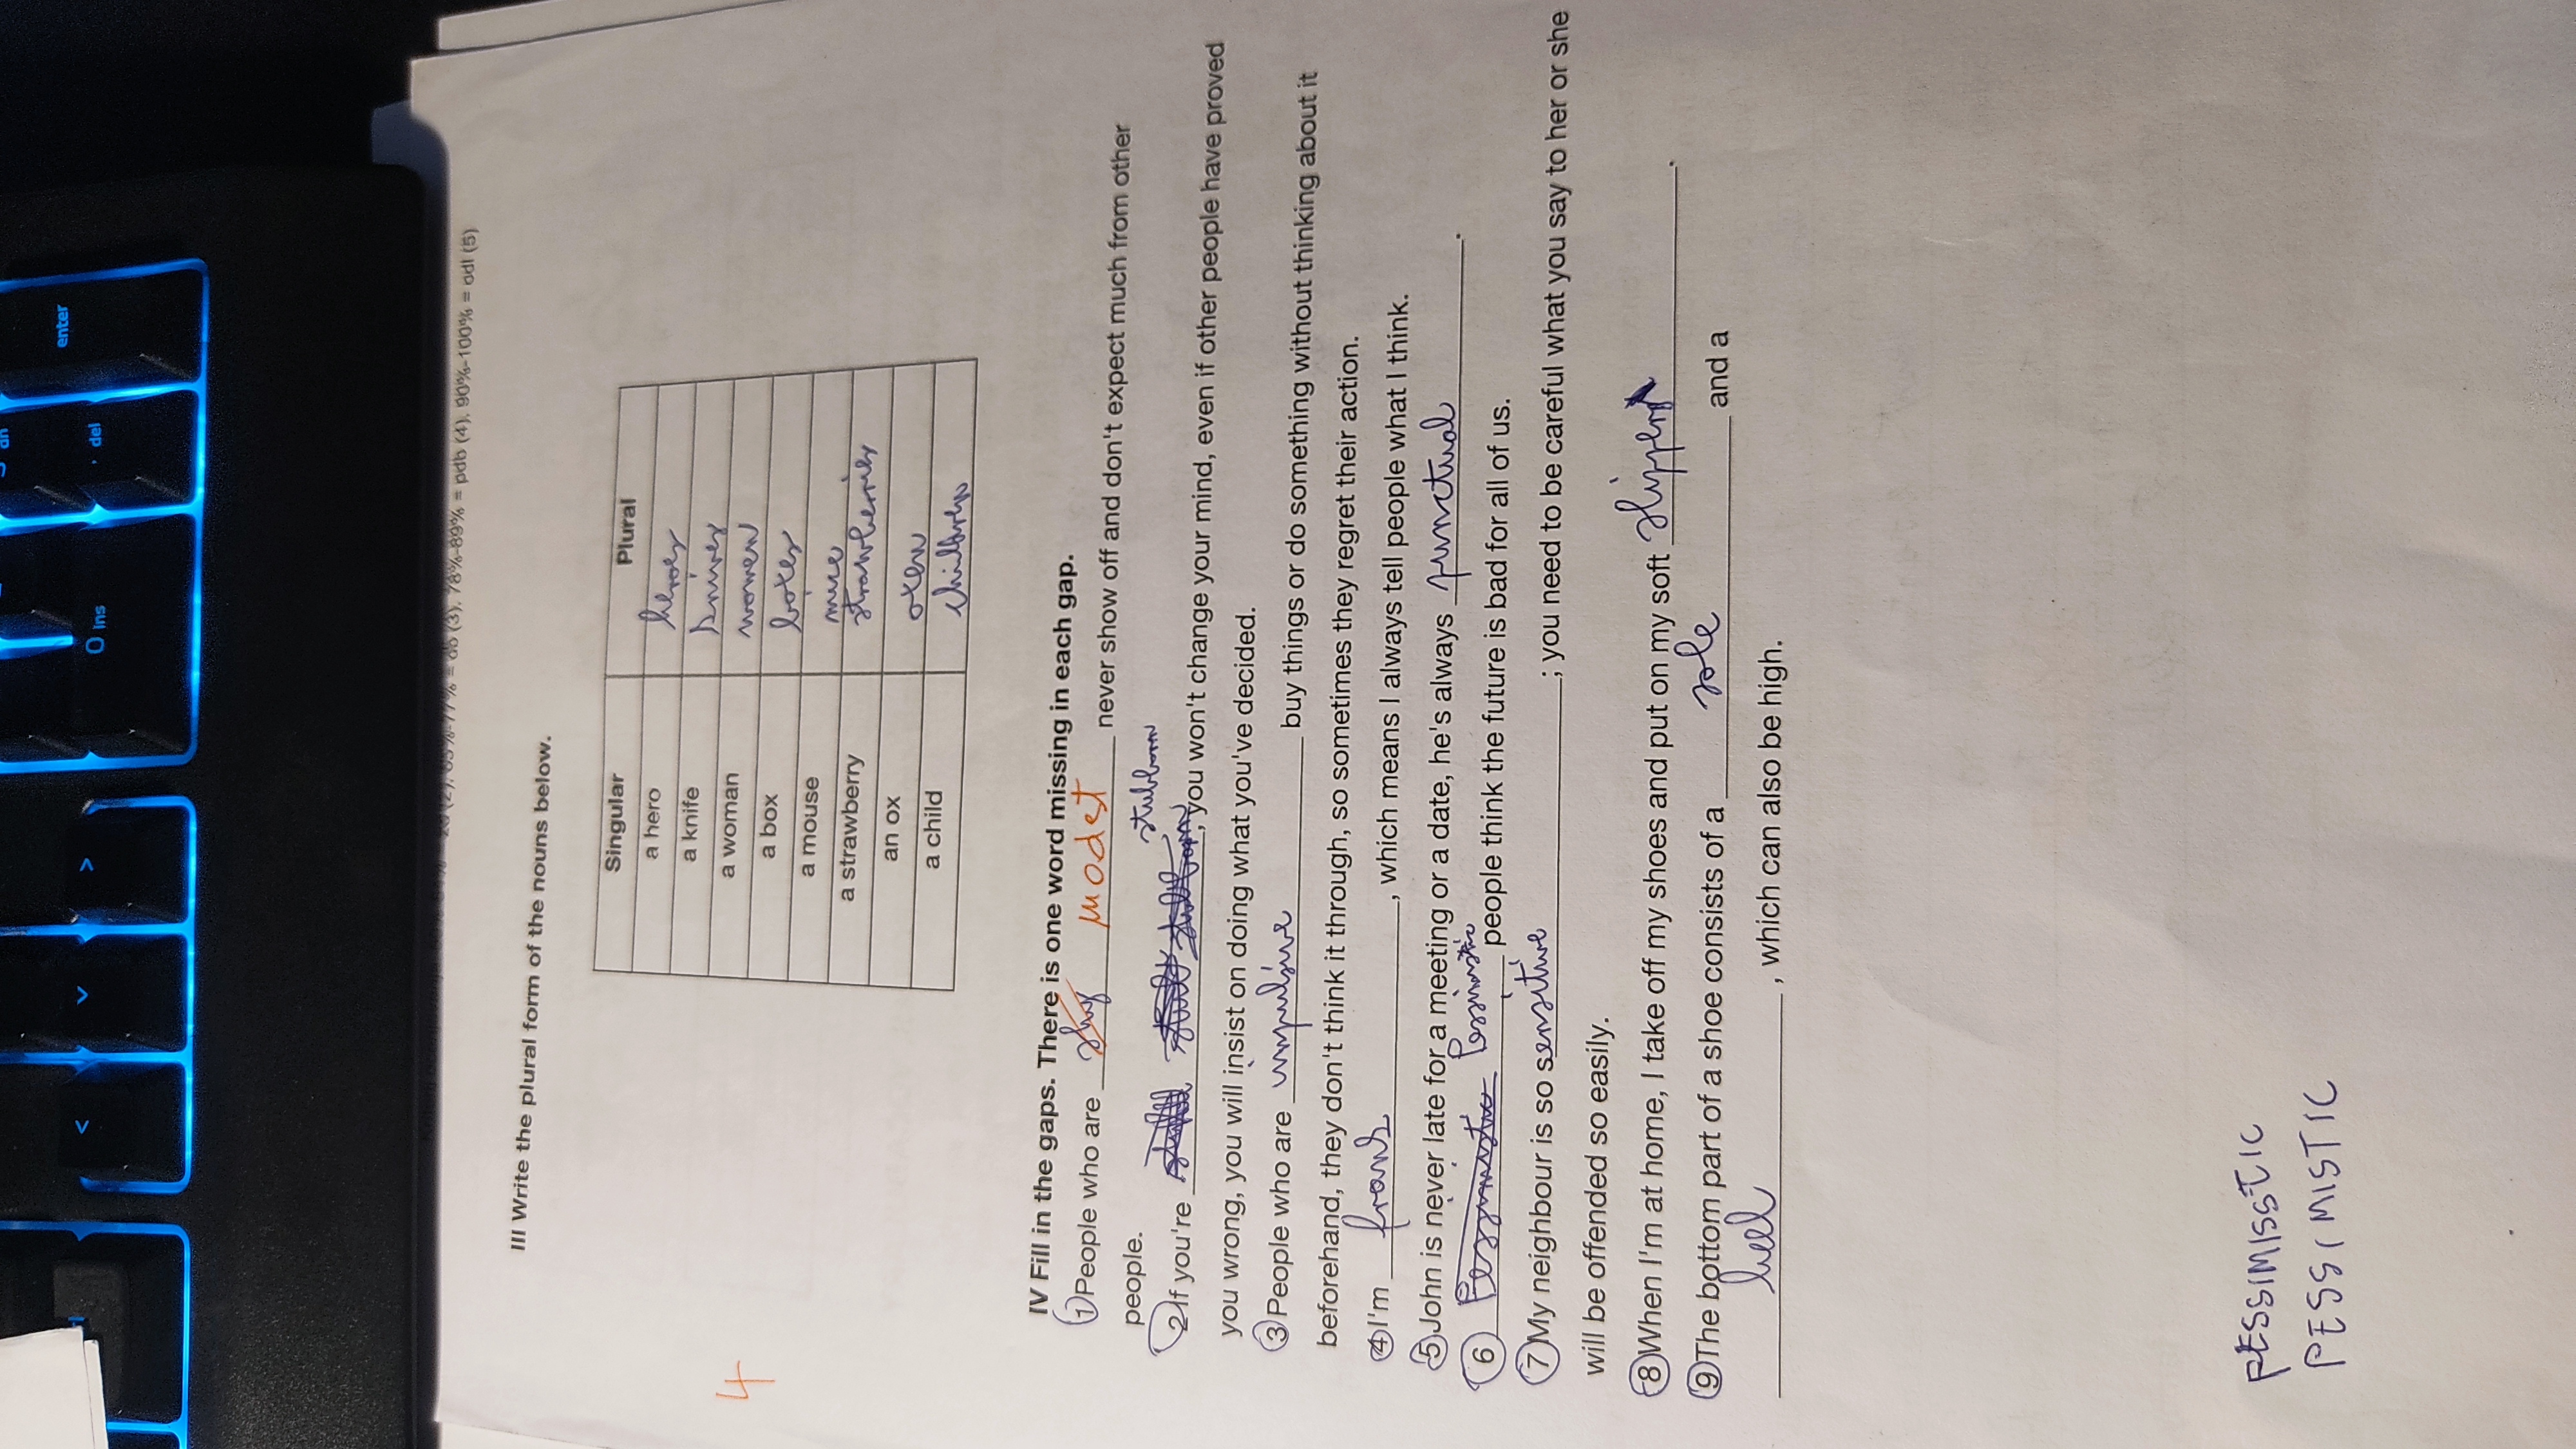 enter
< ⌄ > 0 Ins . del
65%-77% = db (3), 78%-89% = pdb (4), 90%-100% = odl (5)
III Write the plural form of the nouns below.
Singular Plural
a hero heroes
a knife knives
4
a woman women
a box boxes
a mouse mice
a strawberry strawberries
an ox oxen
a child children
IV Fill in the gaps. There is one word missing in each gap.
1 People who are shy modest never show off and don't expect much from other
people.
stubborn
2 If you're , you won't change your mind, even if other people have proved
you wrong, you will insist on doing what you've decided.
3 People who are impulsive buy things or do something without thinking about it
beforehand, they don't think it through, so sometimes they regret their action.
4 I'm frank, which means I always tell people what I think.
5 John is never late for a meeting or a date, he's always punctual.
6 Pessimistic Pessimistic people think the future is bad for all of us.
7 My neighbour is so sensitive; you need to be careful what you say to her or she
will be offended so easily.
8 When I'm at home, I take off my shoes and put on my soft slippers.
9 The bottom part of a shoe consists of a sole and a
heel, which can also be high.
PESSIMISSTIC
PESSIMISTIC